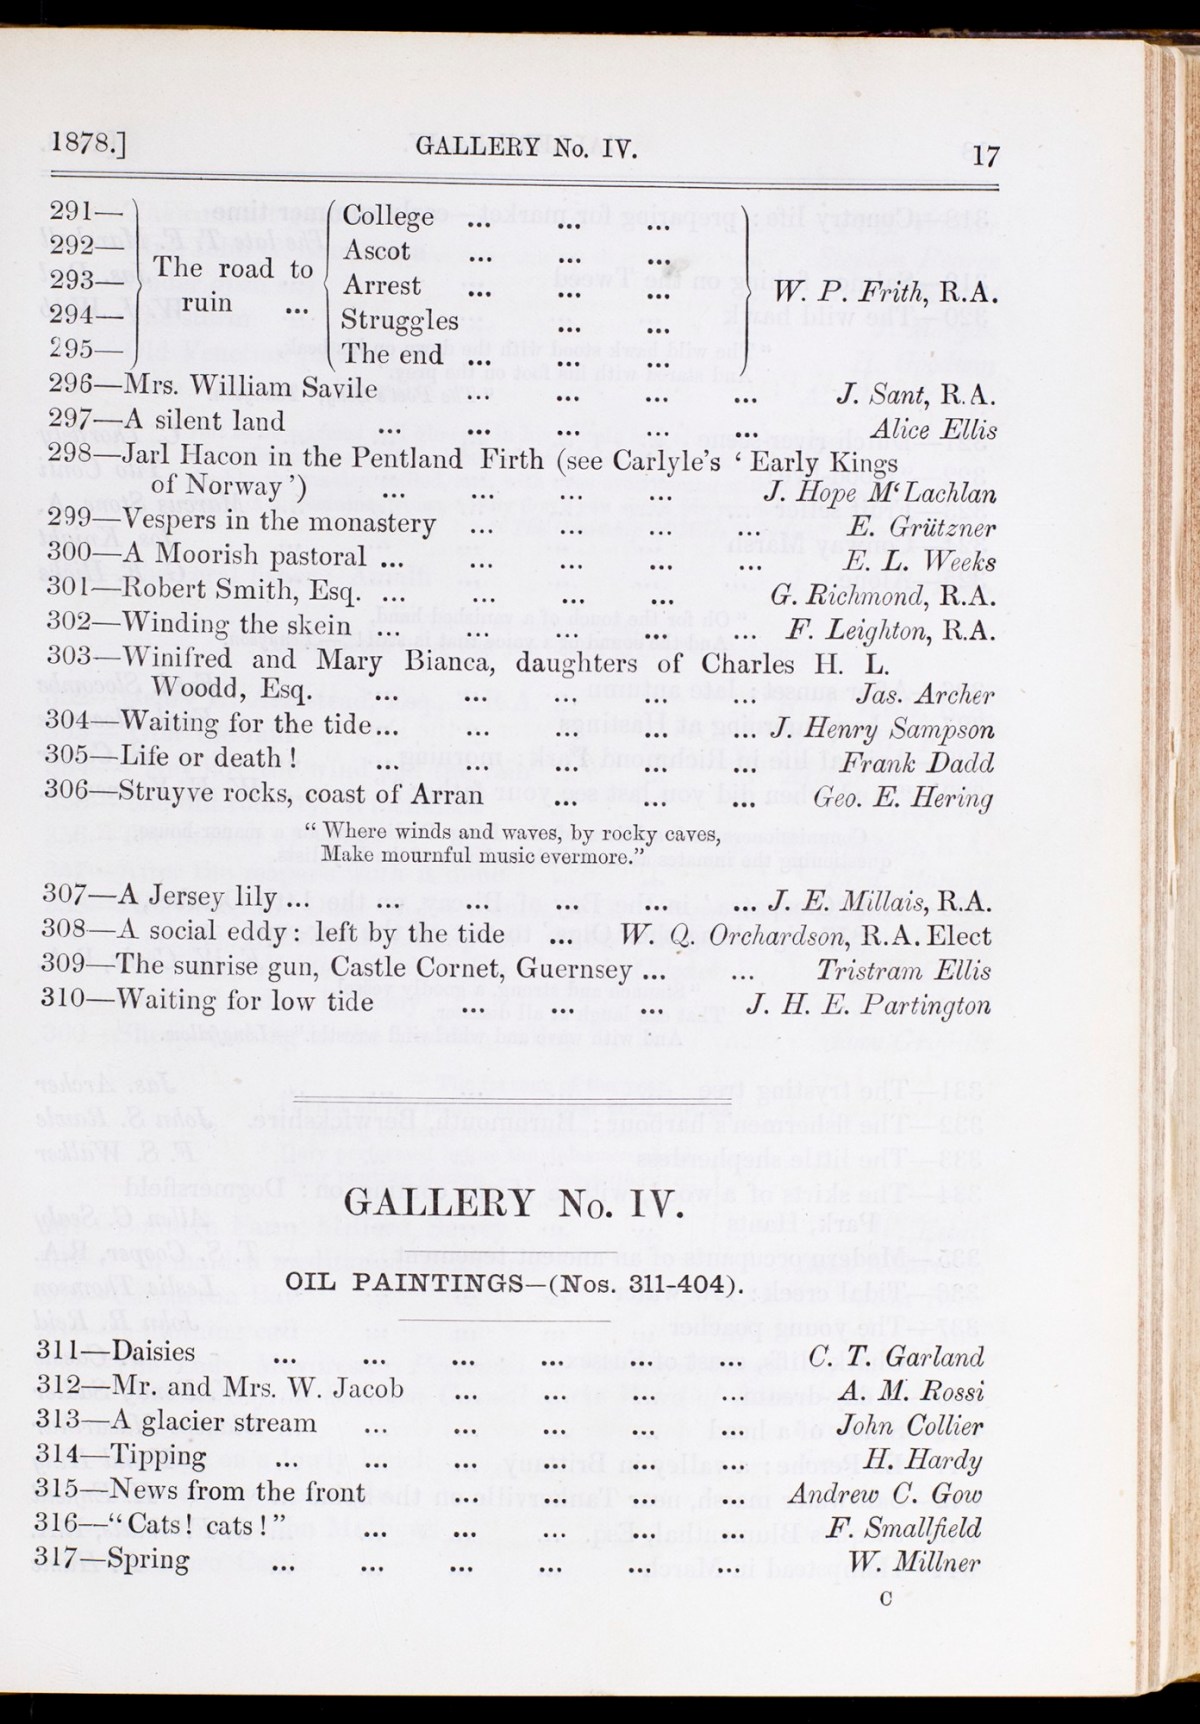 1878.] GALLERY No. IV. 17
291— College ... ... ...
292— Ascot ... ... ...
293— The road to Arrest ... ... ... W. P. Frith, R.A.
294— ruin ... Struggles ... ...
295— The end ... ... ...
296—Mrs. William Savile ... ... ... ... J. Sant, R.A.
297—A silent land ... ... ... ... ... Alice Ellis
298—Jarl Hacon in the Pentland Firth (see Carlyle's ‘ Early Kings
of Norway ’) ... ... ... ... J. Hope M‘Lachlan
299—Vespers in the monastery ... ... ... ... E. Grützner
300—A Moorish pastoral ... ... ... ... ... E. L. Weeks
301—Robert Smith, Esq. ... ... ... ... G. Richmond, R.A.
302—Winding the skein ... ... ... ... ... F. Leighton, R.A.
303—Winifred and Mary Bianca, daughters of Charles H. L.
Woodd, Esq. ... ... ... ... Jas. Archer
304—Waiting for the tide... ... ... ... ... J. Henry Sampson
305—Life or death! ... ... ... ... ... Frank Dadd
306—Struyve rocks, coast of Arran ... ... ... Geo. E. Hering
“ Where winds and waves, by rocky caves,
Make mournful music evermore.”
307—A Jersey lily... ... ... ... ... ... J. E. Millais, R.A.
308—A social eddy: left by the tide ... W. Q. Orchardson, R.A. Elect
309—The sunrise gun, Castle Cornet, Guernsey ... ... Tristram Ellis
310—Waiting for low tide ... ... ... J. H. E. Partington
GALLERY No. IV.
OIL PAINTINGS—(Nos. 311-404).
311—Daisies ... ... ... ... ... ... C. T. Garland
312—Mr. and Mrs. W. Jacob ... ... ... ... A. M. Rossi
313—A glacier stream ... ... ... ... ... John Collier
314—Tipping ... ... ... ... ... ... H. Hardy
315—News from the front ... ... ... ... Andrew C. Gow
316—“Cats! cats!” ... ... ... ... ... F. Smallfield
317—Spring ... ... ... ... ... ... W. Millner
C